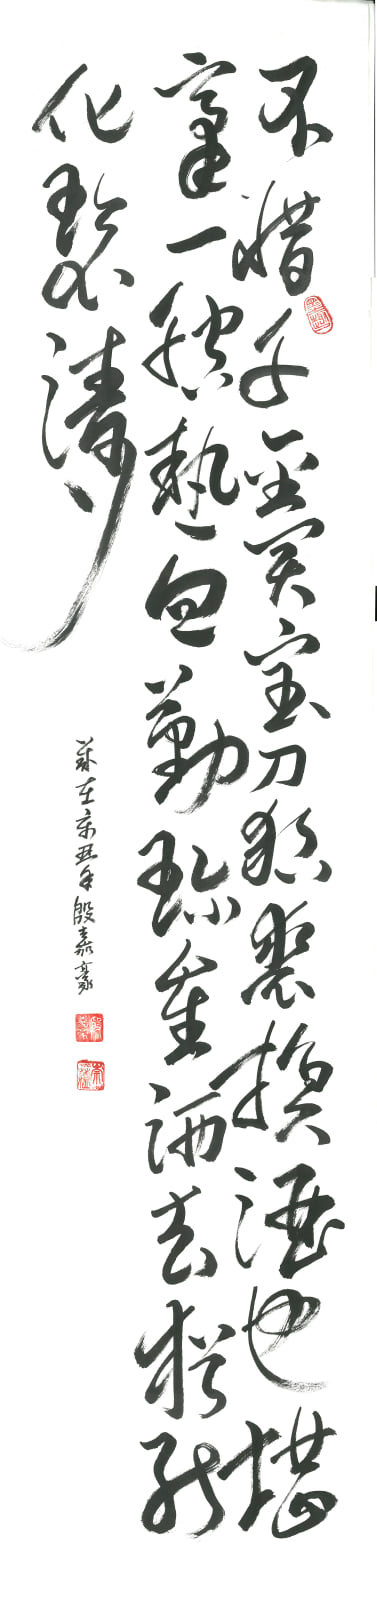 不惜千金買寶刀貂裘換酒也堪
豪一腔熱血勤珍重洒去猶能
化碧濤
歲在辛丑年殷嘉豪